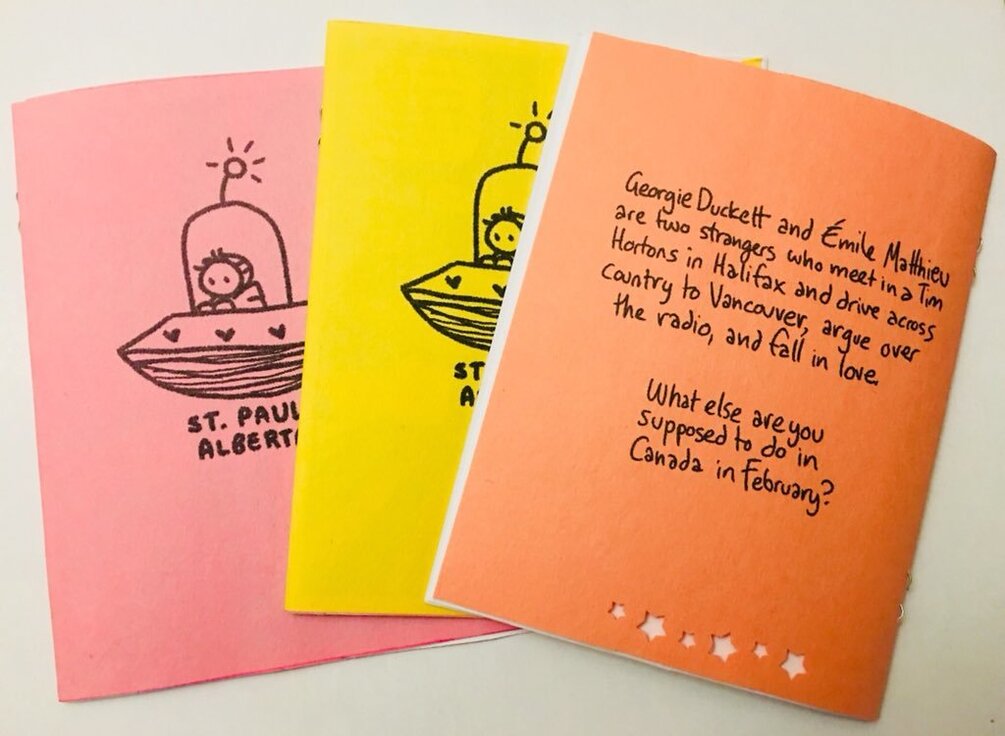 ST. PAUL
ALBERT
ST
A
Georgie Duckett and Émile Matthieu
are two strangers who meet in a Tim
Hortons in Halifax and drive across
country to Vancouver, argue over
the radio, and fall in love.
What else are you
supposed to do in
Canada in February?